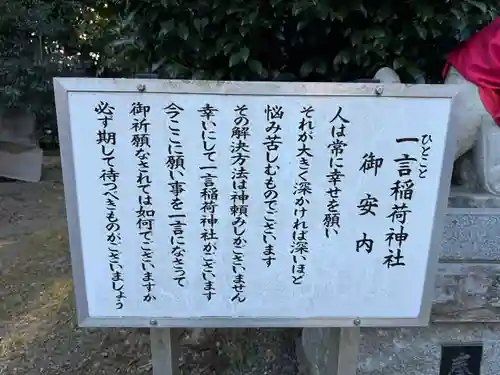 一言稲荷神社
ひとこと
御安内
人は常に幸せを願い、
それが大きく深かければ深いほど
悩み苦しむものでございます
その解決方法は神頼みしかございません
幸いにして一言稲荷神社がございます
今ここに願い事を一言になさって
御祈願なされては如何でございますか
必ず期して待つべきものがございましょう